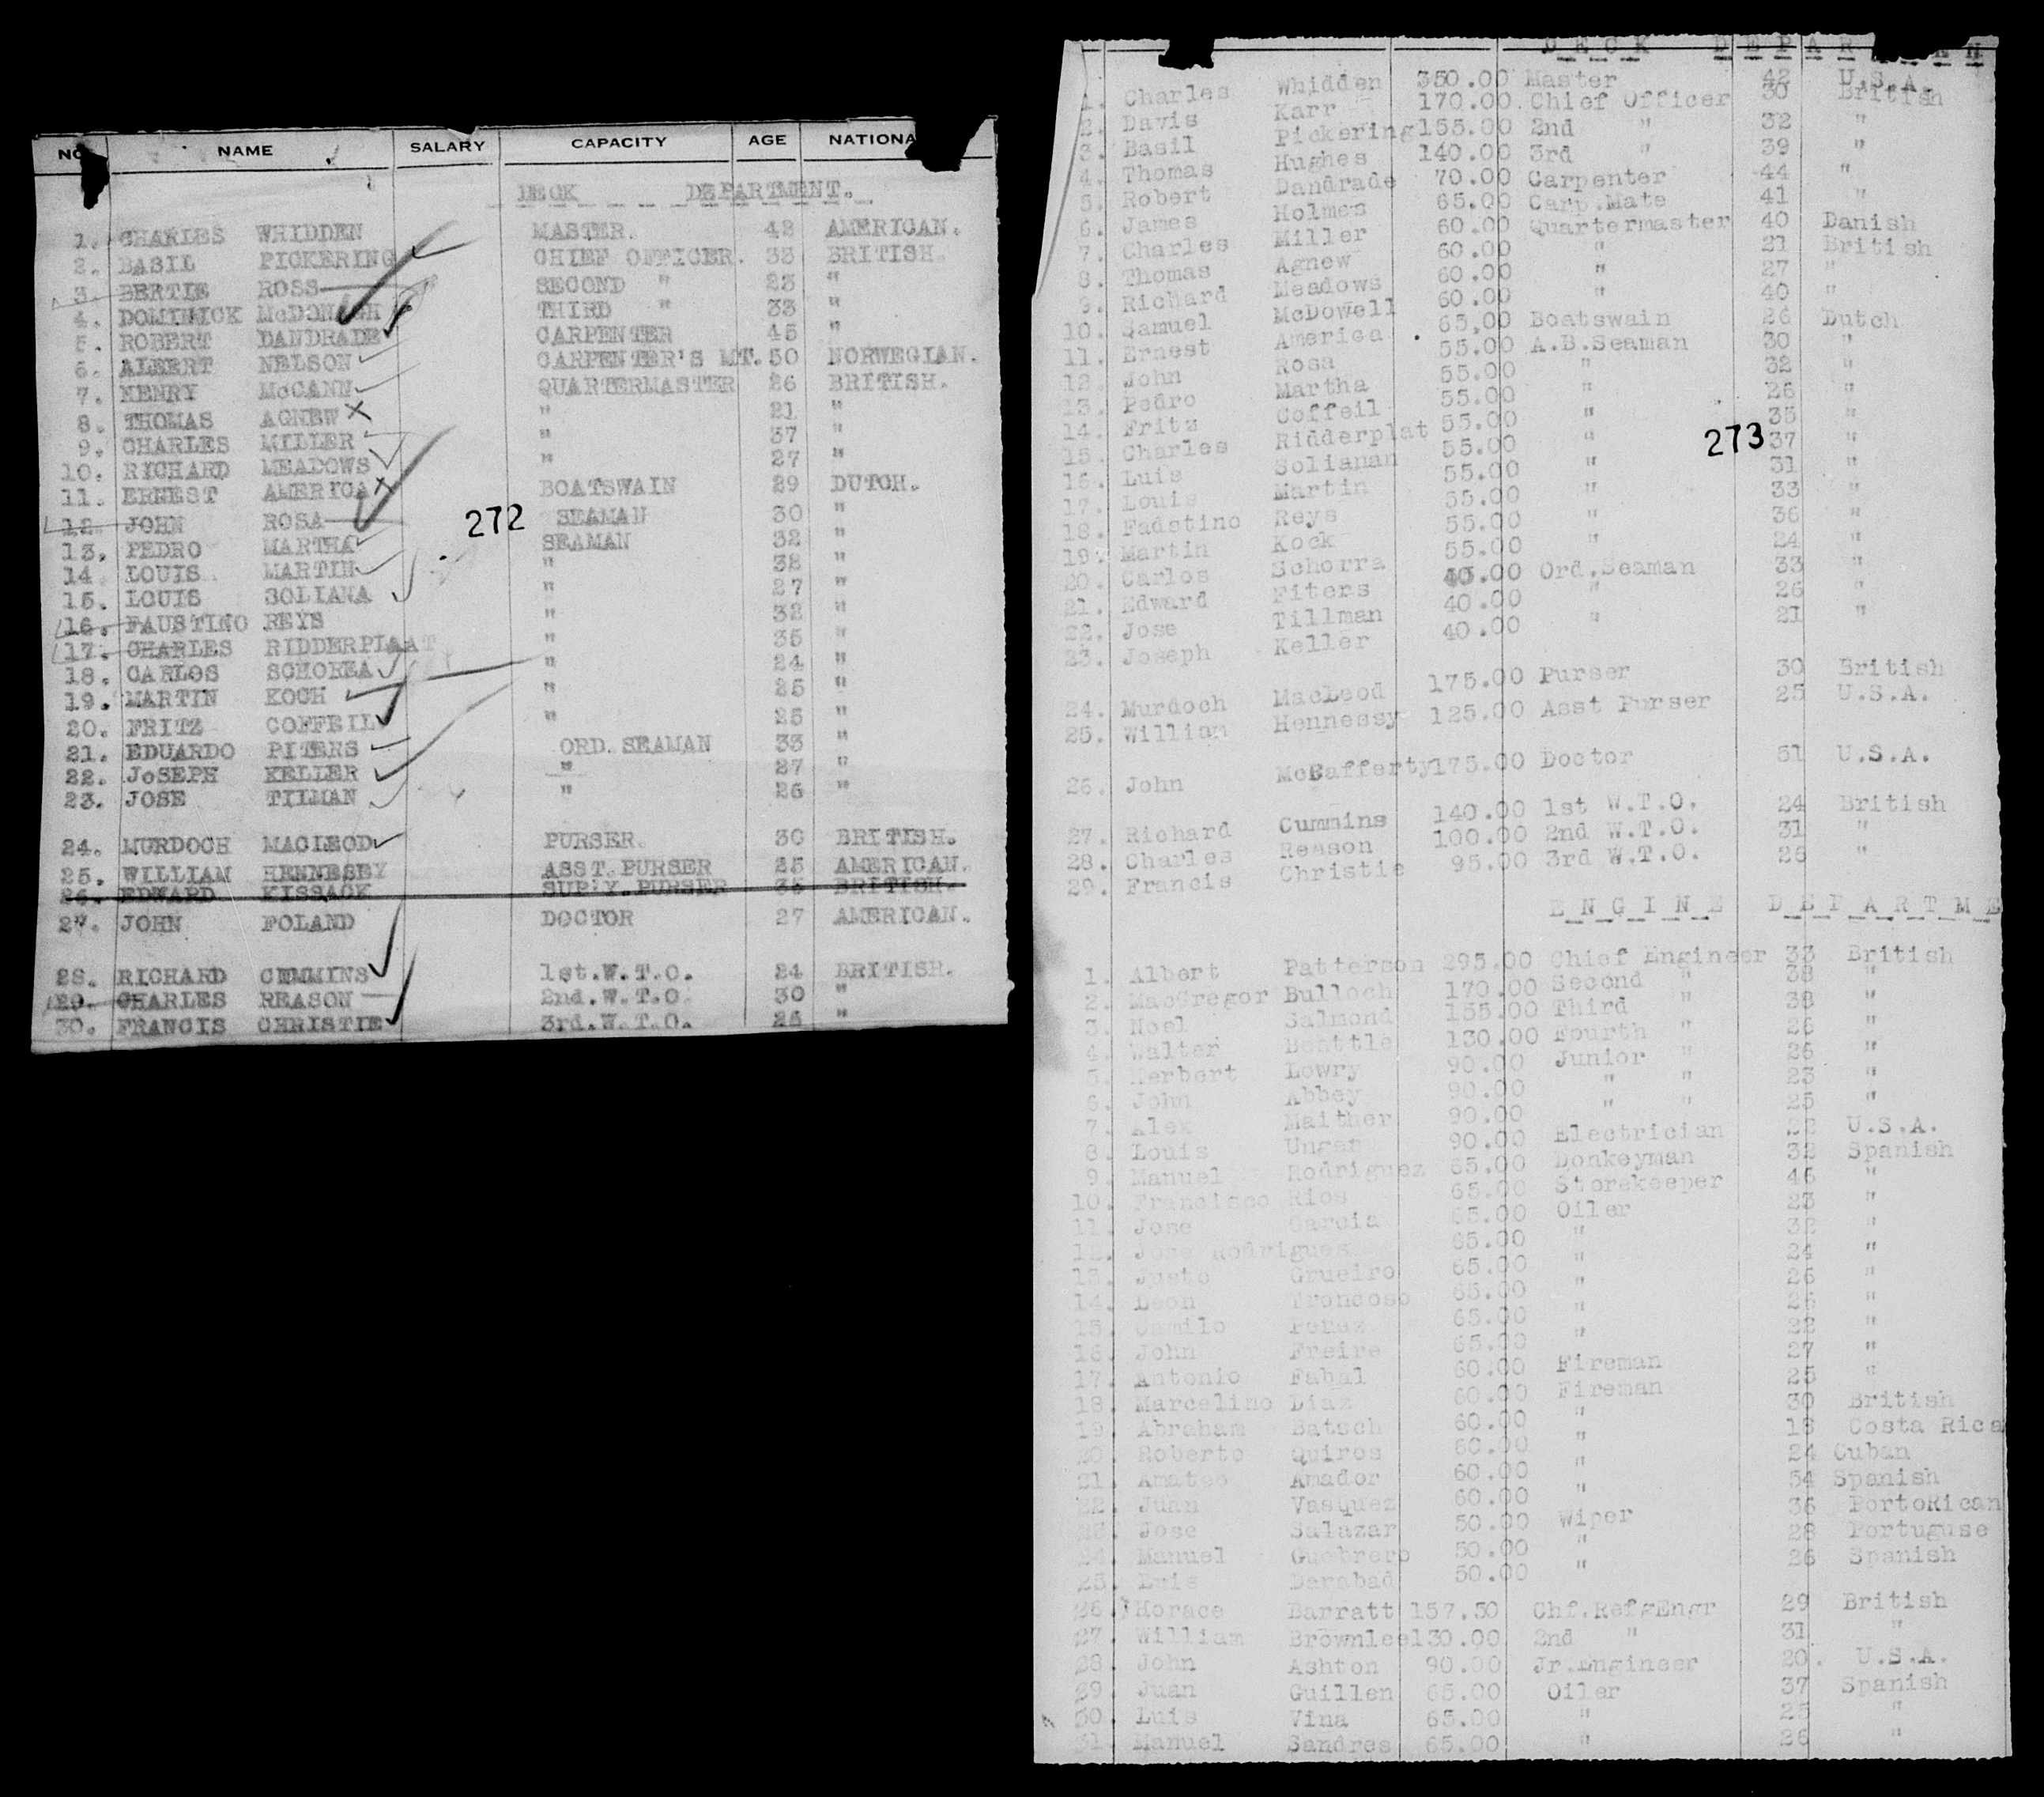 NO. NAME SALARY CAPACITY AGE NATIONA
DECK DEPARTMENT.
1. CHARLES WHIDDEN MASTER. 42 AMERICAN.
2. BASIL PICKERING CHIEF OFFICER. 33 BRITISH.
3. BERTIE ROSS SECOND " 23 "
4. DOMINICK McDONAGH THIRD " 33 "
5. ROBERT DANDRADE CARPENTER 45 "
6. ALBERT NELSON CARPENTER'S MT. 50 NORWEGIAN.
7. HENRY McCANN QUARTERMASTER 26 BRITISH.
8. THOMAS AGNEW X " 21 "
9. CHARLES MILLER " 37 "
10. RICHARD MEADOWS " 27 "
11. ERNEST AMERICA X BOATSWAIN 29 DUTCH.
12. JOHN ROSA SEAMAN 30 "
272
13. PEDRO MARTHA SEAMAN 32 "
14. LOUIS MARTIN " 32 "
15. LOUIS SOLIANA " 27 "
16. FAUSTINO REYS " 32 "
17. CHARLES RIDDERPLAAT " 35 "
18. CARLOS SCHOREA " 24 "
19. MARTIN KOCH " 25 "
20. FRITZ COFFEIL " 25 "
21. EDUARDO PITERS ORD. SEAMAN 33 "
22. JoSEPH KELLER " 27 "
23. JOSE TILMAN " 26 "
24. MURDOCH MACLEOD PURSER. 30 BRITISH.
25. WILLIAM HENNESEY ASST.PURSER 25 AMERICAN.
26. EDWARD KISSACK SUP'Y.PURSER 36 BRITISH.
27. JOHN POLAND DOCTOR 27 AMERICAN.
28. RICHARD CUMMINS 1st.W.T.O. 24 BRITISH.
29. CHARLES REASON 2nd.W.T.O. 30 "
30. FRANCIS CHRISTIE 3rd.W.T.O. 25 "
DECK DEPAR EN
1. Charles Whidden 350.00 Master 42 U.S.A.
2. Davis Karr 170.00 Chief Officer 30 British
3. Basil Pickering 155.00 2nd " 32 "
4. Thomas Hughes 140.00 3rd " 39 "
5. Robert Dandrade 70.00 Carpenter 44 "
6. James Holmes 65.00 Carp.Mate 41 "
7. Charles Miller 60.00 Quartermaster 40 Danish
8. Thomas Agnew 60.00 " 21 British
9. Richard Meadows 60.00 " 27 "
10. Samuel McDowell 60.00 " 40 "
11. Ernest America 65.00 Boatswain 26 Dutch
12. John Rosa 55.00 A.B.Seaman 30 "
13. Pedro Martha 55.00 " 32 "
14. Fritz Coffeil 55.00 " 26 "
15. Charles Ridderplat 55.00 " 35 "
273
16. Luis Solianan 55.00 " 37 "
17. Louis Martin 55.00 " 31 "
18. Fadstino Reys 55.00 " 33 "
19. Martin Kock 55.00 " 36 "
20. Carlos Schorra 55.00 " 24 "
21. Edward Piters 40.00 Ord.Seaman 33 "
22. Jose Tillman 40.00 " 26 "
23. Joseph Keller 40.00 " 21 "
24. Murdoch MacLeod 175.00 Purser 30 British
25. William Hennessy 125.00 Asst Purser 25 U.S.A.
26. John McCafferty 175.00 Doctor 51 U.S.A.
27. Richard Cummins 140.00 1st W.T.O. 24 British
28. Charles Reason 100.00 2nd W.T.O. 31 "
29. Francis Christie 95.00 3rd W.T.O. 26 "
ENGINE DEPARTME
1. Albert Patterson 295.00 Chief Engineer 33 British
2. MacGregor Bulloch 170.00 Second " 38 "
3. Noel Salmond 155.00 Third " 38 "
4. Walter 130.00 Fourth " 26 "
5. Herbert Lowry 90.00 Junior " 26 "
6. John Abbey 90.00 " " 23 "
7. Alex Maither 90.00 " " 25 "
8. Louis Ungar 90.00 Electrician 22 U.S.A.
9. Manuel Rodriguez 65.00 Donkeyman 32 Spanish
10. Francisco Rios 65.00 Storekeeper 46 "
11. Jose Garcia 65.00 Oiler 23 "
12. Jose Rodrigues 65.00 " 32 "
13. Justo Grueiro 65.00 " 24 "
14. Leon Troncoso 65.00 " 26 "
15. Camilo Perez 65.00 " 26 "
16. John Freire 65.00 " 22 "
17. Antonio Fabal 60.00 Fireman 27 "
18. Marcelino Diaz 60.00 Fireman 25 "
19. Abraham Batsch 60.00 " 30 British
20. Roberto Quiros 60.00 " 18 Costa Rica
21. Amateo Amador 60.00 " 24 Cuban
22. Juan Vasquez 60.00 " 54 Spanish
23. Jose Salazar 50.00 Wiper 36 PortoRican
24. Manuel Guebrero 50.00 " 28 Portuguse
25. Luis Darabad 50.00 " 26 Spanish
26. Horace Barratt 157.50 Chf.RefgEngr 29 British
27. William Brownlee 130.00 2nd " 31 "
28. John Ashton 90.00 Jr.Engineer 20. U.S.A.
29. Juan Guillen 65.00 Oiler 37 Spanish
30. Luis Vina 65.00 " 25 "
31. Manuel Sandres 65.00 " 26 "